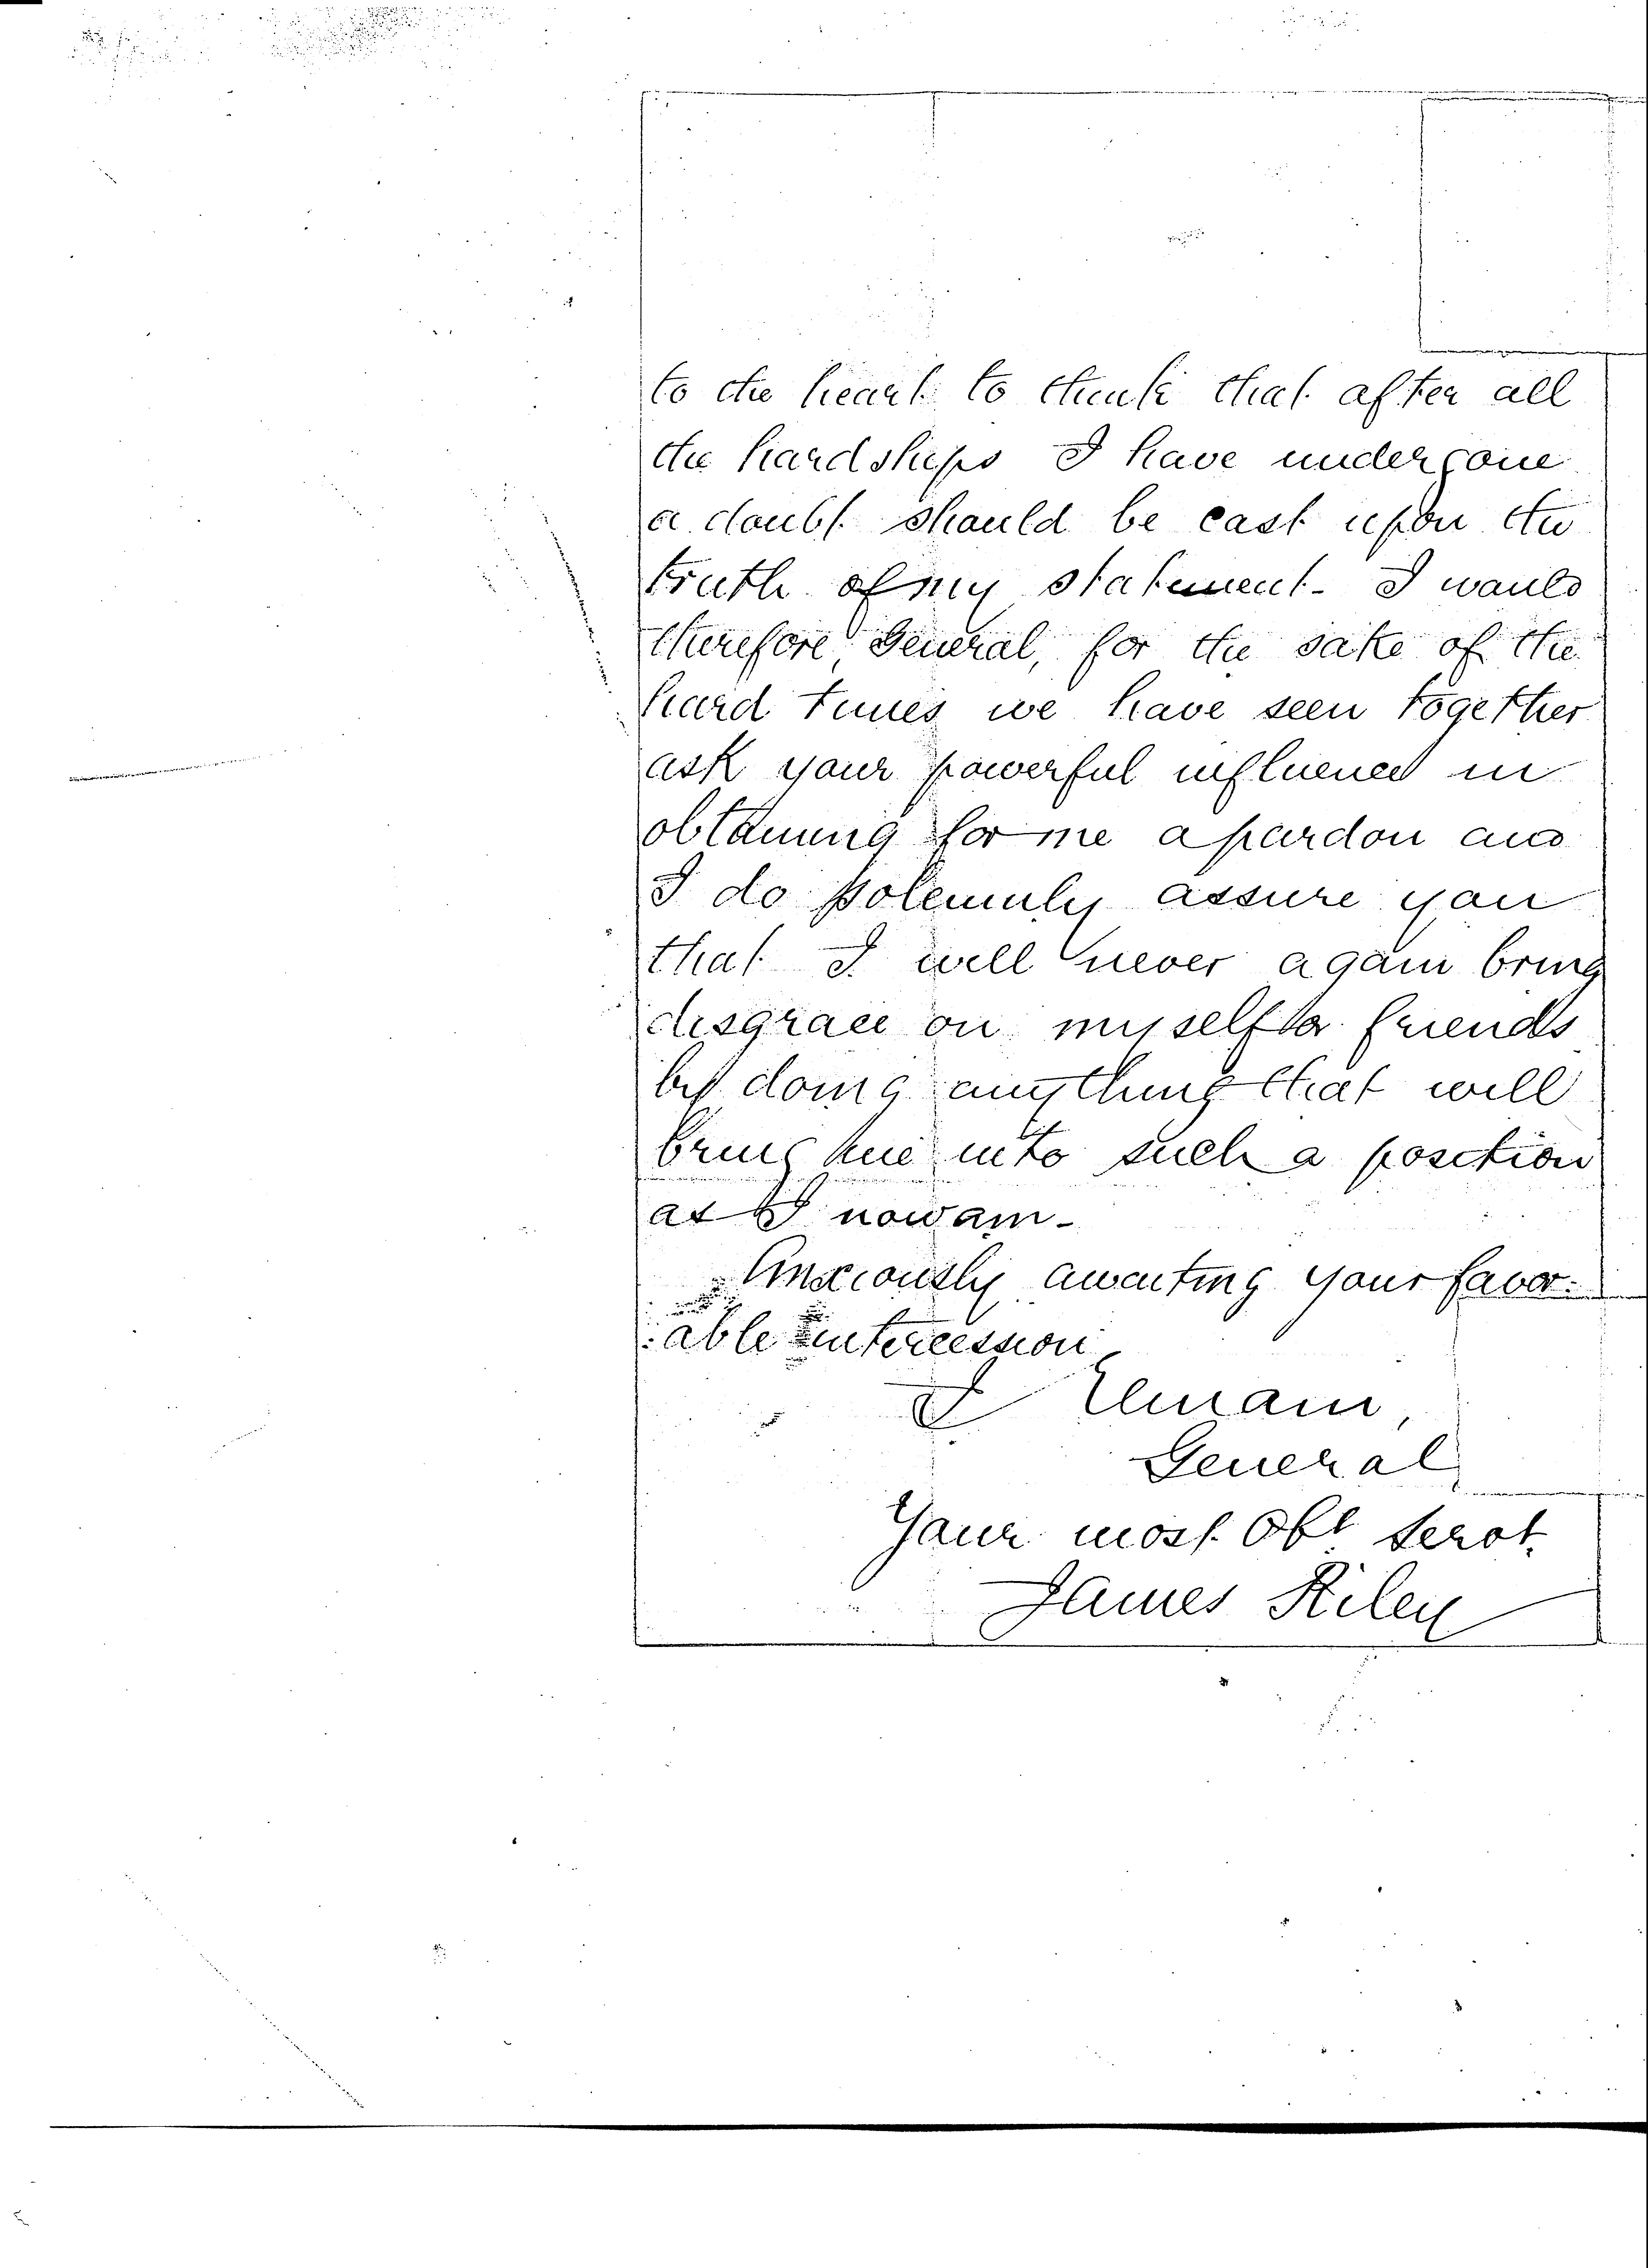 to the heart to think that after all
the hardships I have undergone
a doubt should be cast upon the
truth of my statement - I would
therefore, General, for the sake of the
hard times we have seen together
ask your powerful influence in
obtaining for me a pardon and
I do solemnly assure you
that I will never again bring
disgrace on myself or friends
by doing anything that will
bring me into such a position
as I now am -
Anxiously awaiting your favor-
able intercession
I remain,
General
Your most Obt Servt.
James Riley